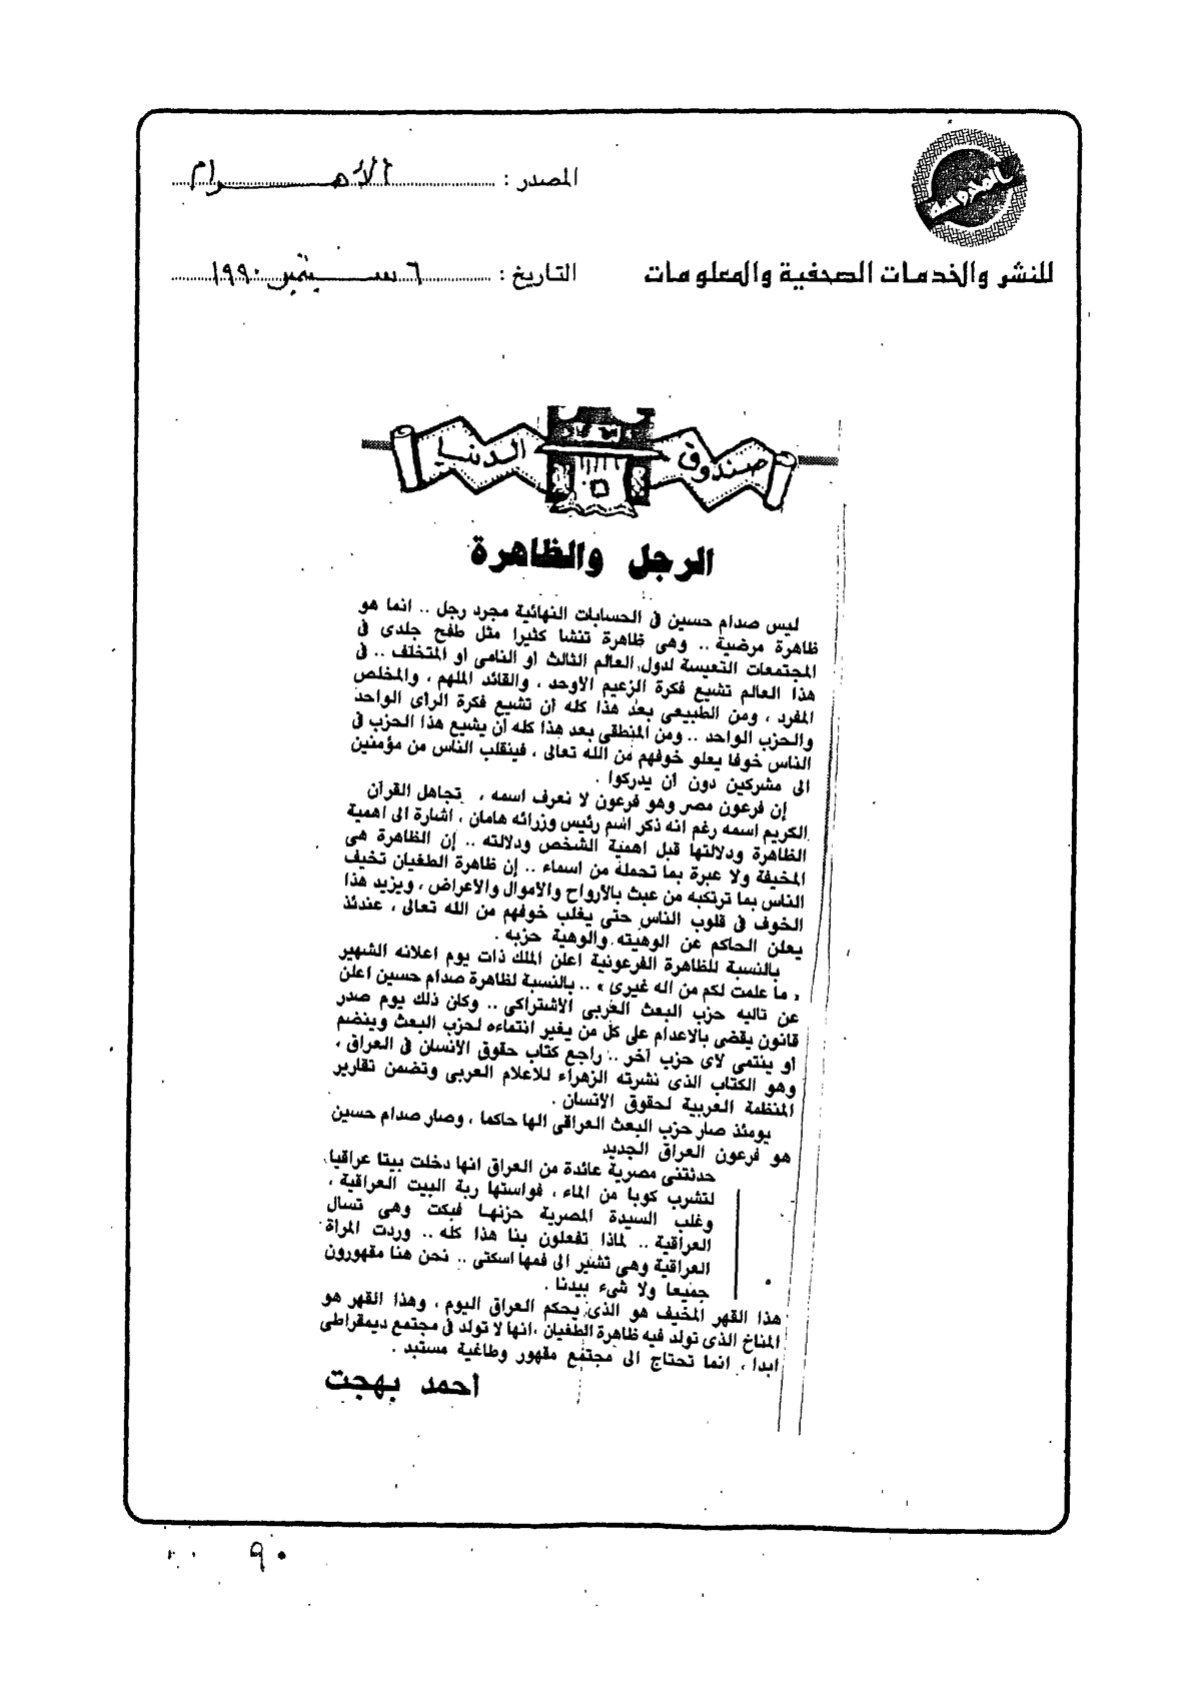 المصدر : الأهرام
للنشر والخدمات الصحفية والمعلومات
التاريخ : ٦ سبتمبر ١٩٩٠
صندوق الدنيا
الرجل والظاهرة
ليس صدام حسين فى الحسابات النهائية مجرد رجل .. انما هو
ظاهرة مرضية .. وهى ظاهرة تنشا كثيرا مثل طفح جلدى فى
المجتمعات التعيسة لدول العالم الثالث او النامى او المتخلف .. فى
هذا العالم تشيع فكرة الزعيم الاوحد ، والقائد الملهم ، والمخلص
المفرد ، ومن الطبيعى بعد هذا كله ان تشيع فكرة الرأى الواحد
والحزب الواحد .. ومن المنطقى بعد هذا كله أن يشيع هذا الحزب فى
الناس خوفا يعلو خوفهم من الله تعالى ، فينقلب الناس من مؤمنين
الى مشركين دون ان يدركوا .
إن فرعون مصر وهو فرعون لا نعرف اسمه ، تجاهل القرآن
الكريم اسمه رغم انه ذكر اسم رئيس وزرائه هامان ، اشارة الى اهمية
الظاهرة ودلالتها قبل اهمية الشخص ودلالته .. إن الظاهرة هى
المخيفة ولا عبرة بما تحمله من اسماء .. إن ظاهرة الطغيان تخيف
الناس بما ترتكبه من عبث بالأرواح والاموال والاعراض ، ويزيد هذا
الخوف فى قلوب الناس حتى يغلب خوفهم من الله تعالى ، عندئذ
يعلن الحاكم عن الوهيته والوهية حزبه .
بالنسبة للظاهرة الفرعونية اعلن الملك ذات يوم اعلانه الشهير
« ما علمت لكم من اله غيرى » .. بالنسبة لظاهرة صدام حسين اعلن
عن تاليه حزب البعث العربى الاشتراكى .. وكان ذلك يوم صدر
قانون يقضى بالاعدام على كل من يغير انتماءه لحزب البعث وينضم
أو ينتمى لاى حزب آخر .. راجع كتاب حقوق الانسان فى العراق ،
وهو الكتاب الذى نشرته الزهراء للاعلام العربى وتضمن تقارير
المنظمة العربية لحقوق الإنسان .
يومئذ صار حزب البعث العراقى الها حاكما ، وصار صدام حسين
هو فرعون العراق الجديد
حدثتنى مصرية عائدة من العراق انها دخلت بيتا عراقيا
لتشرب كوبا من الماء ، فواستها ربة البيت العراقية ،
وغلب السيدة المصرية حزنها فبكت وهى تسال
العراقية .. لماذا تفعلون بنا هذا كله .. وردت المراة
العراقية وهى تشير الى فمها اسكتى .. نحن هنا مقهورون
جميعا ولا شىء بيدنا .
هذا القهر المخيف هو الذى يحكم العراق اليوم ، وهذا القهر هو
المناخ الذى تولد فيه ظاهرة الطغيان ، انها لا تولد فى مجتمع ديمقراطى
ابدا ، انما تحتاج الى مجتمع مقهور وطاغية مستبد .
احمد بهجت
٩٠